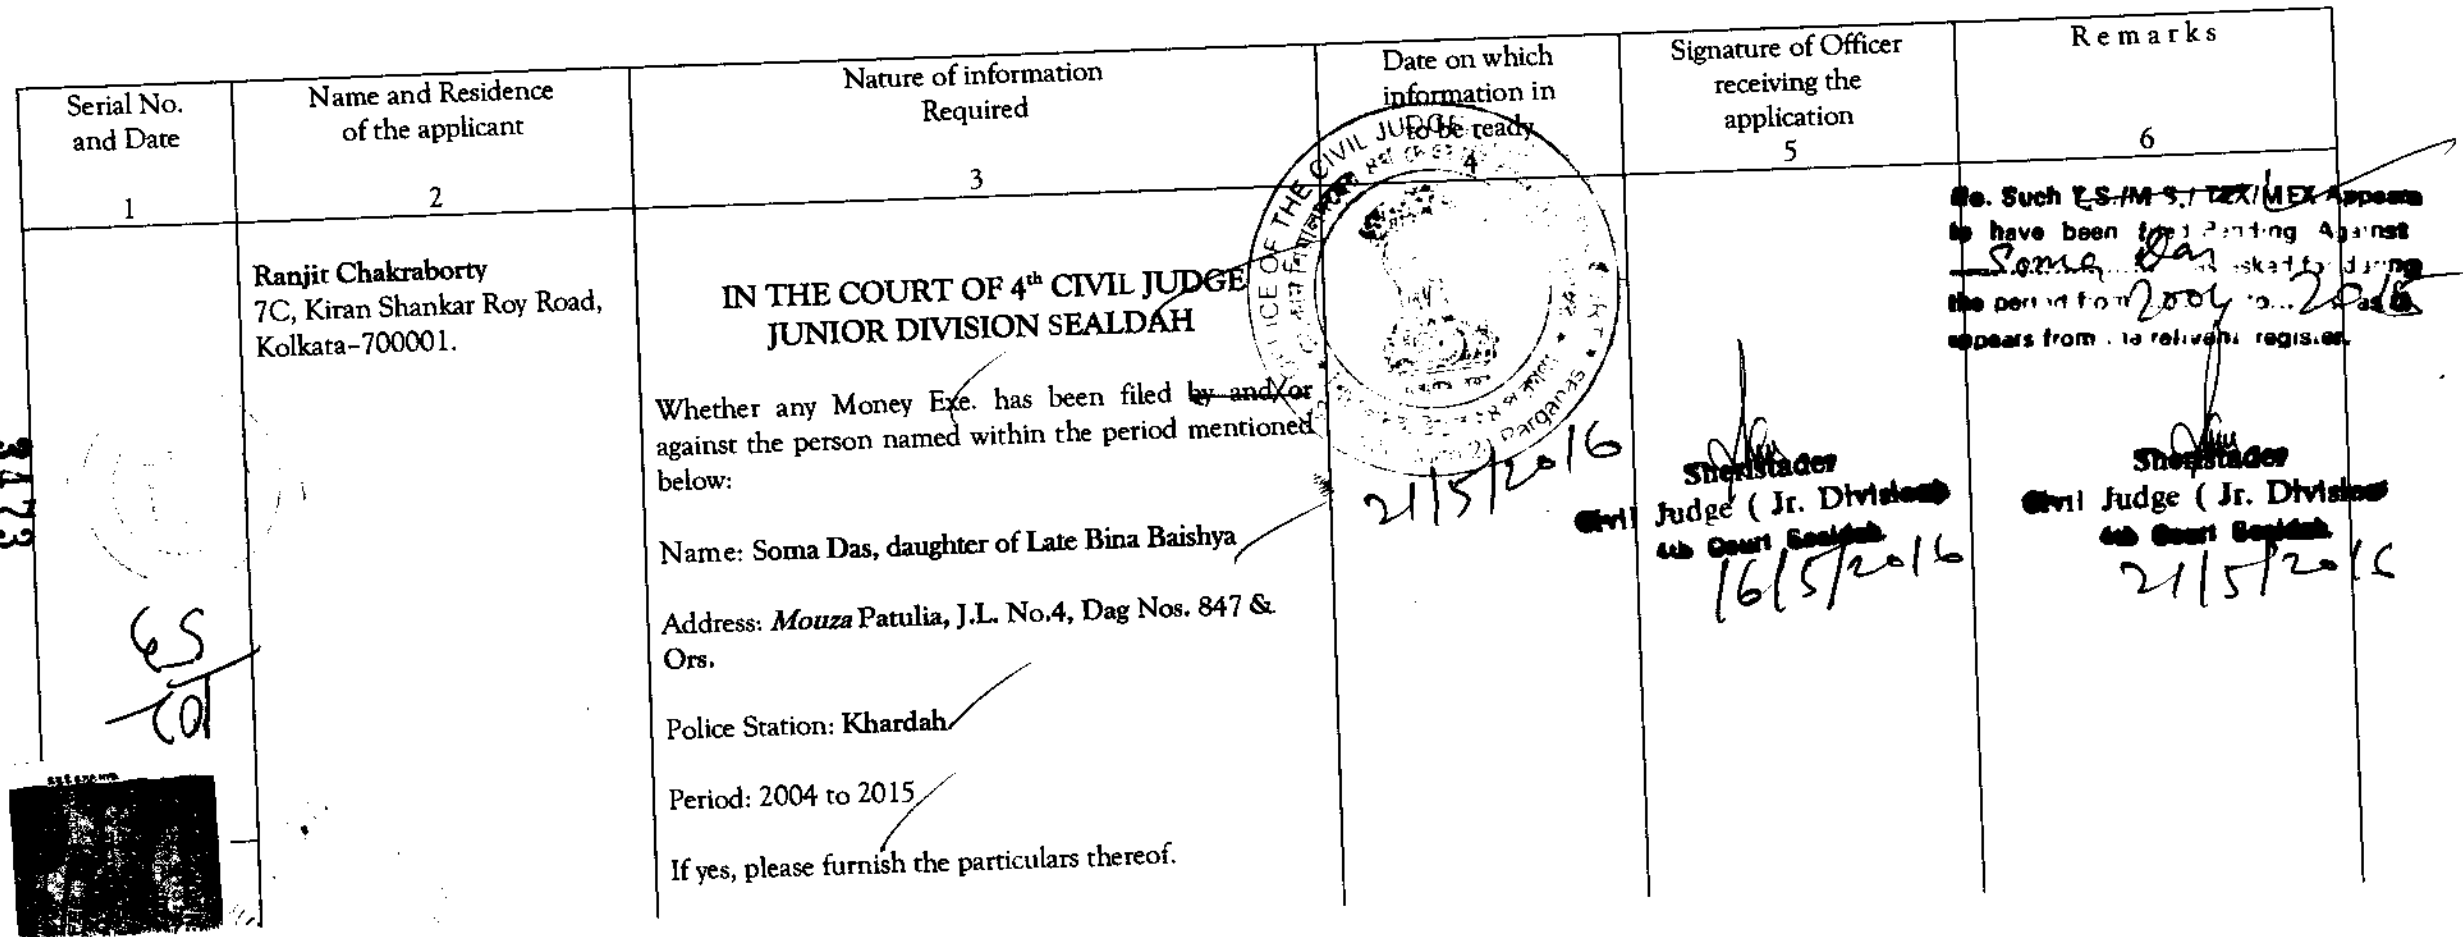 Serial No.
and Date
1
Name and Residence
of the applicant
2
Nature of information
Required
3
Date on which
information in
to be ready
4
Signature of Officer
receiving the
application
5
Remarks
6
Ranjit Chakraborty
7C, Kiran Shankar Roy Road,
Kolkata-700001.
IN THE COURT OF 4th CIVIL JUDGE
JUNIOR DIVISION SEALDAH
Whether any Money Exe. has been filed by and/or
against the person named within the period mentioned
below:
Name: Soma Das, daughter of Late Bina Baishya
Address: Mouza Patulia, J.L. No.4, Dag Nos. 847 &
Ors.
Police Station: Khardah
Period: 2004 to 2015
If yes, please furnish the particulars thereof.
OFFICE OF THE CIVIL JUDGE
Parganas
21/5/2016
Sheristader
Civil Judge ( Jr. Division
4th Court Sealdah
16/5/2016
No. Such T.S./M.S./ TEX/MEX Appears
to have been Pending Against
Soma Das asked for during
the period from 2004 to 2015 as
appears from relivent register.
Sheristader
Civil Judge ( Jr. Division
4th Court Sealdah
21/5/2016